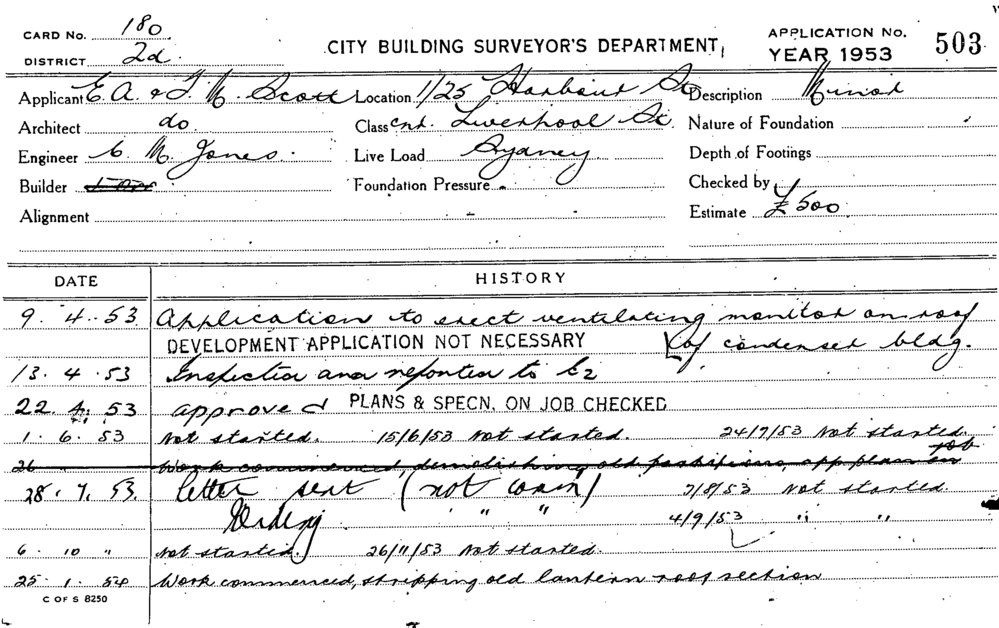 CARD No. 180
DISTRICT 2d.
CITY BUILDING SURVEYOR'S DEPARTMENT,
APPLICATION No.
YEAR 1953
503
Applicant E. A. & F. M. Scott Location 1/25 Harbour St. Description Minor
Architect do Class cnr. Liverpool St. Nature of Foundation
Engineer C. M. Jones. Live Load Sydney Depth of Footings
Builder Foundation Pressure Checked by
Alignment Estimate £500
DATE HISTORY
9. 4. 53 Application to erect ventilating monitor on roof
DEVELOPMENT APPLICATION NOT NECESSARY of condenser bldg.
13. 4. 53 Inspection and reported to
22. 4. 53 approved PLANS & SPECN. ON JOB CHECKED
1. 6. 53 Not started. 15/6/53 Not started. 24/7/53 Not started.
26 Work commenced, demolishing old partitions, app. plan on job
28. 7. 53 letter sent (not comm) 7/8/53 Not started
" " 4/9/53 " "
6 10 " Not started. 26/11/53 Not started.
25. 1. 54 Work commenced, stripping old lantern roof section
C OF S 8250